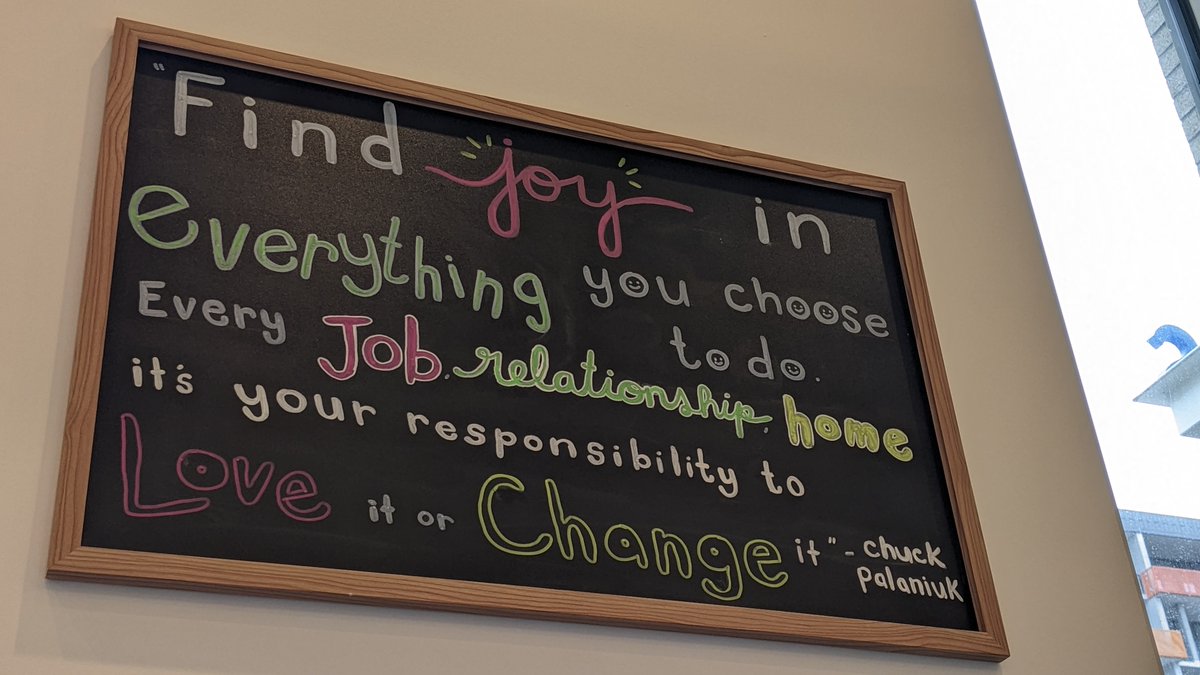 "Find joy in
everything you choose
to do.
Every Job, relationship, home
it's your responsibility to
Love it or Change it" - chuck
palaniuk